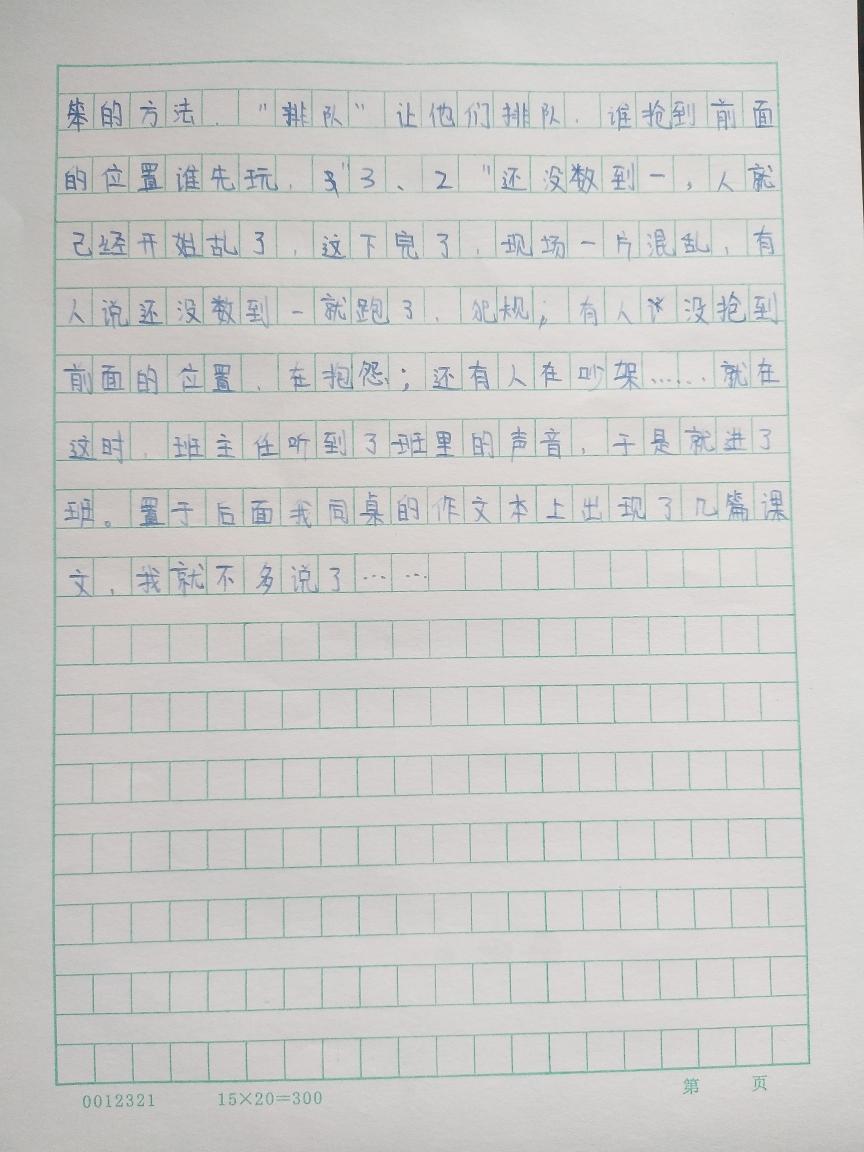 笨的方法，“排队”让他们排队，谁抢到前面
的位置谁先玩，“3、2”还没数到一，人就
已经开始乱了，这下完了，现场一片混乱，有
人说还没数到一就跑了，犯规；有人没抢到
前面的位置，在抱怨；还有人在吵架……就在
这时，班主任听到了班里的声音，于是就进了
班。置于后面我同桌的作文本上出现了几篇课
文，我就不多说了……
0012321 15×20=300 第 页